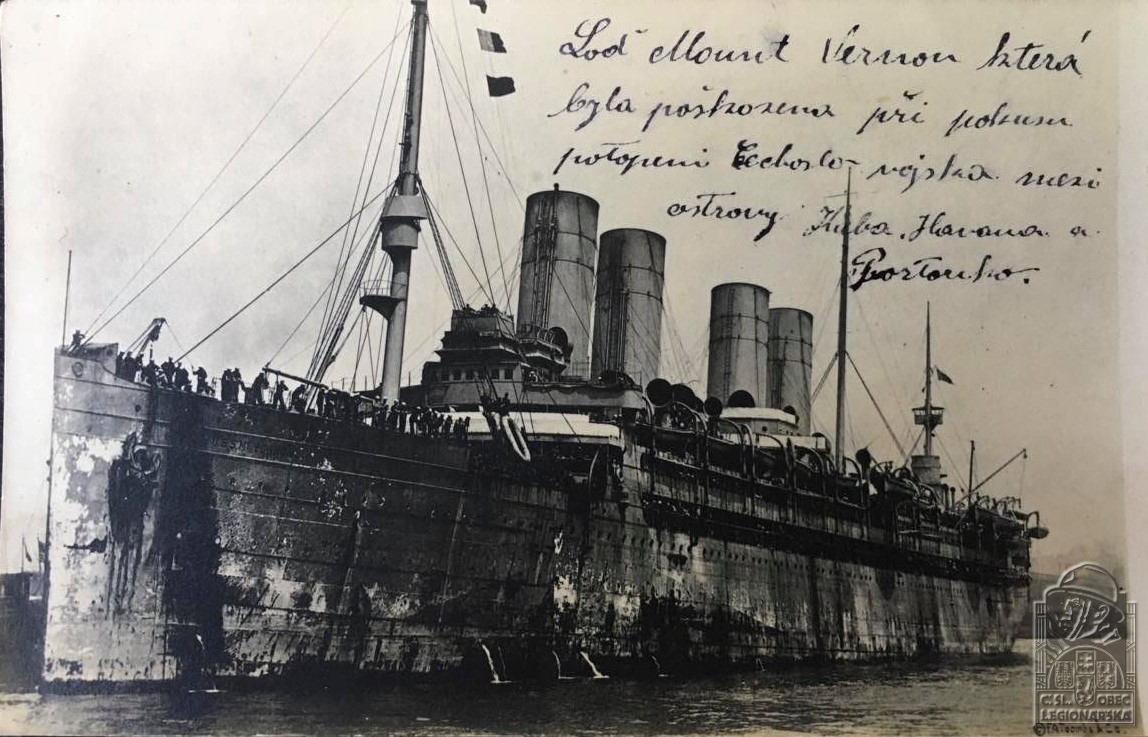 Loď Mount Vernon která
byla poškozena při pokusu
potopení Čechoslo- vojska mezi
ostrovy Kuba, Havana a
Portoriko.
ČSL. OBEC
LEGIONÁŘSKÁ